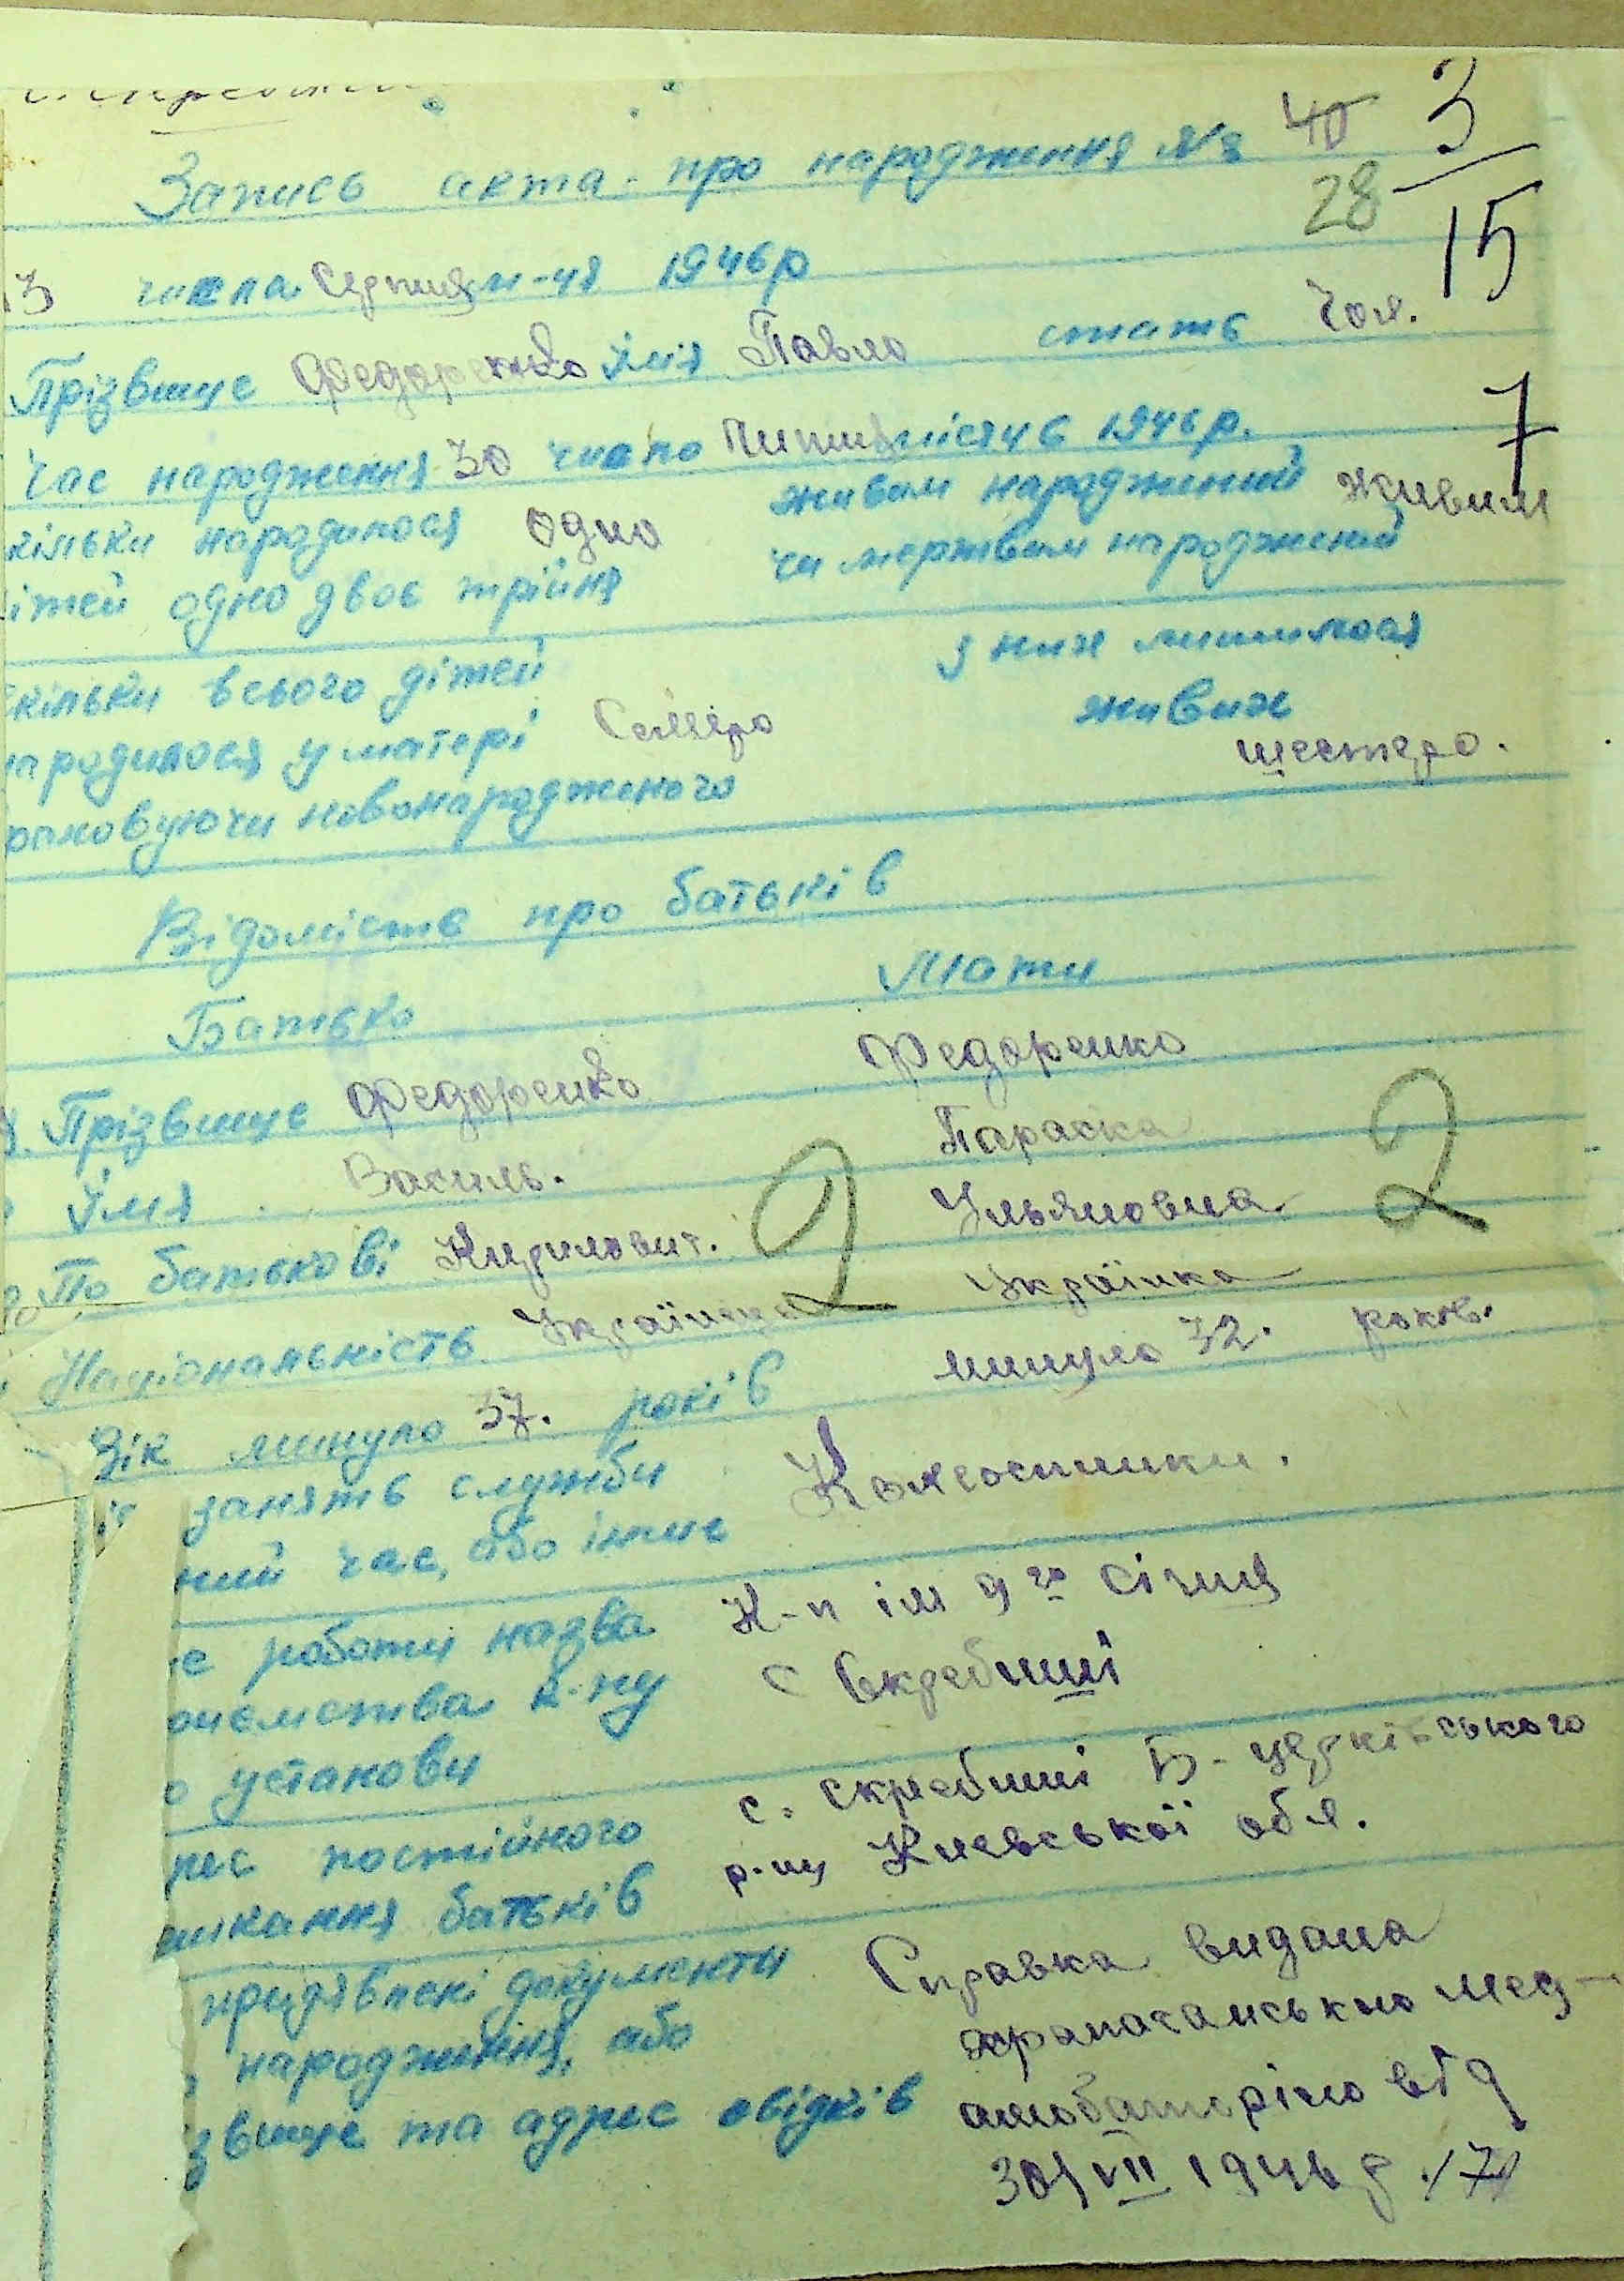 Запись акта про народження №
40 3
28 15
13 числа Серпня м-ця 1946р
Прізвище Федоренко Імя Павло стать Чол.
7
Час народження 30 число Липня місяць 1946р.
кільки народилося одно живим народжений живим
ітей одно двоє трійня чи мертвим народжений
кільки всього дітей з них лишилося
народилося у матері Семеро живих
раховуючи новонародженого шестеро.
Відомість про батьків
Батько Мати
Прізвище Федоренко Федоренко
Імя Василь. Параска
По батькові Кирилович. 2 Ульяновна 2
Національність Українець Українка
Вік минуло 37. років минуло 32. років.
занять служби Колгоспники.
ний час, або інше
е роботи назва К-п ім 9го Січня
риємства к-пу с Скребиші
о установи
рес постійного с. Скребиші Б-церківського
шкання батьків р-ну Киевської обл.
придявлені документи Справка видана
народження, або мед-
звище та адрес свідків амбаторією від
30/VII 1946 р. /7/